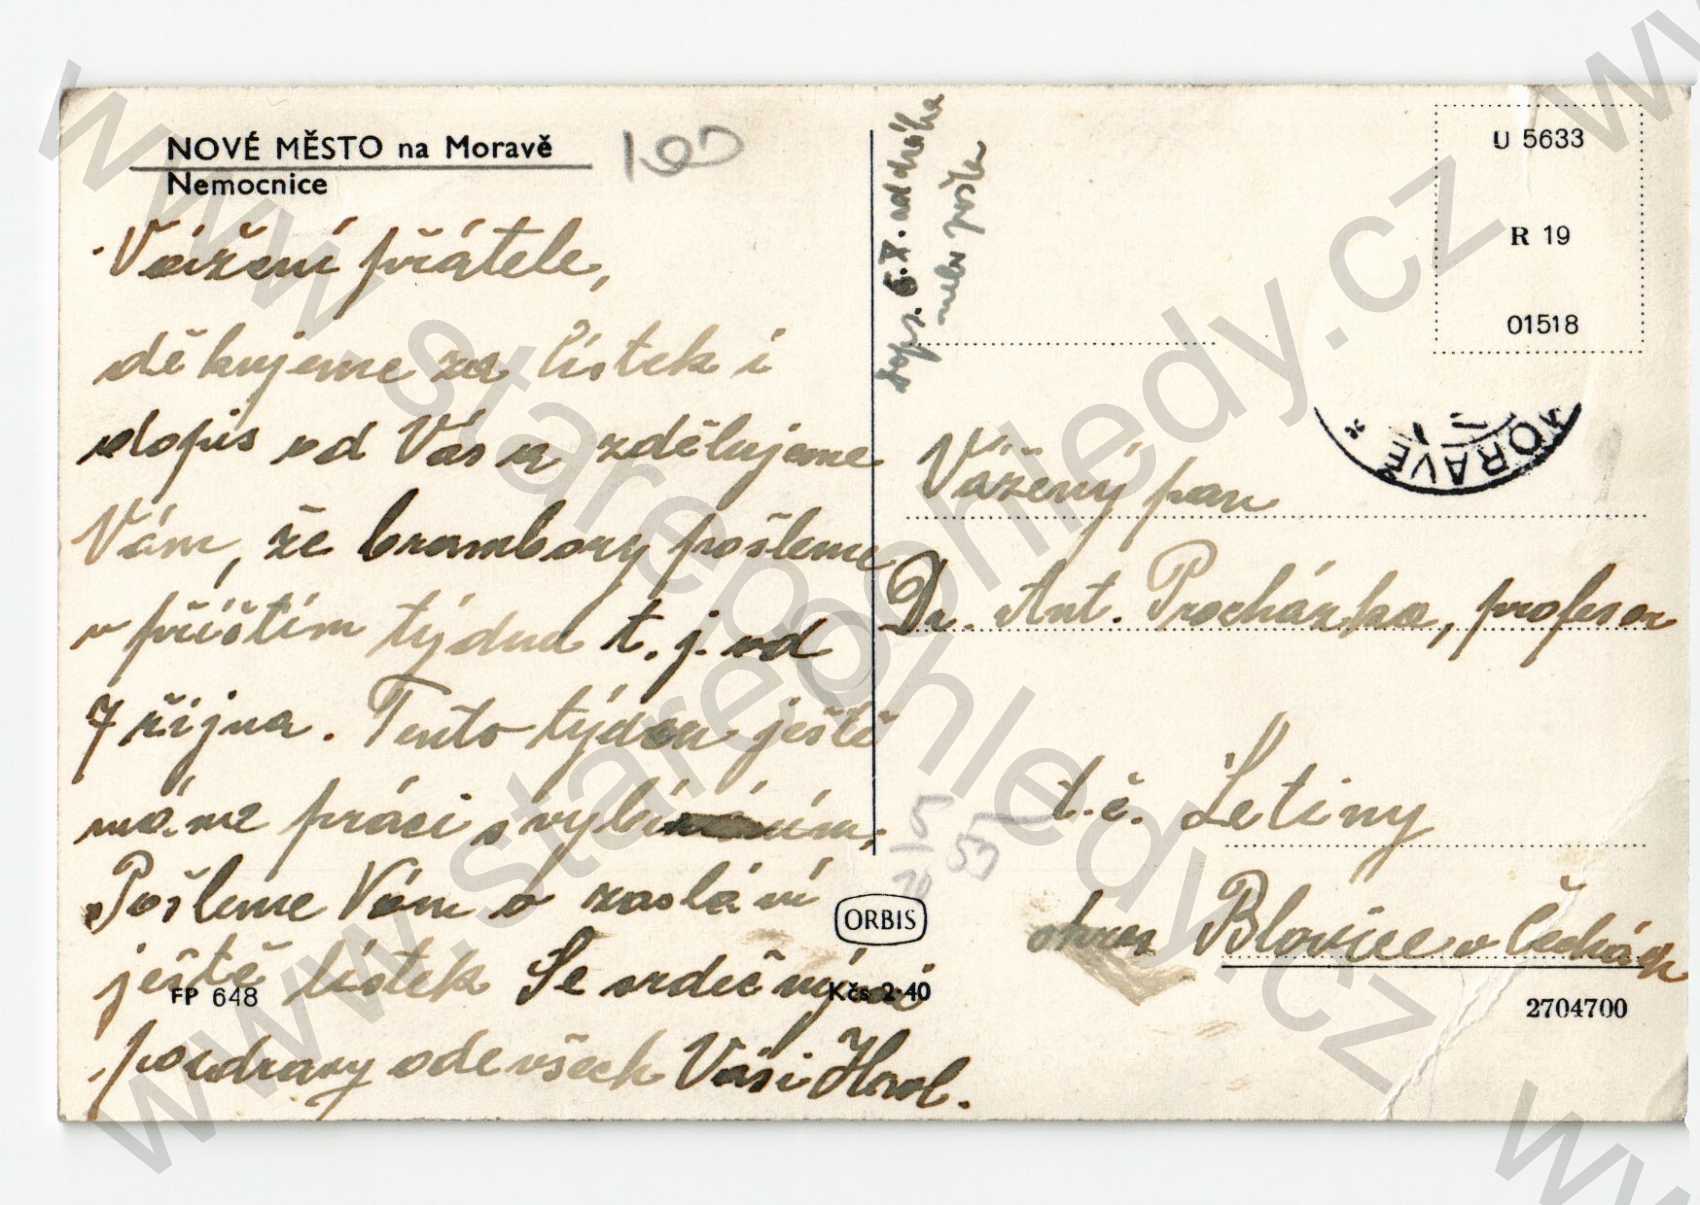 NOVÉ MĚSTO na Moravě
Nemocnice
100
Vážení přátele,
děkujeme za lístek i
dopis od Vás a zdělujeme
Vám, že brambory pošleme
v příštím týdnu t. j. od
7 října. Tento týden ještě
máme práci s vybíráním,
Pošleme Vám o zaslání
ještě lístek Se srdečnými
pozdravy ode všech Vaši
FP 648
ORBIS
Kčs 2·40
6.X. adresa
nebo pošta
U 5633
R 19
01518
MORAVĚ
Vážený pan
Dr. Ant. Procházka, profesor
t.č. Letiny
okres Blovice v Čechách
2704700
www.starepohledy.cz
www.starepohledy.cz